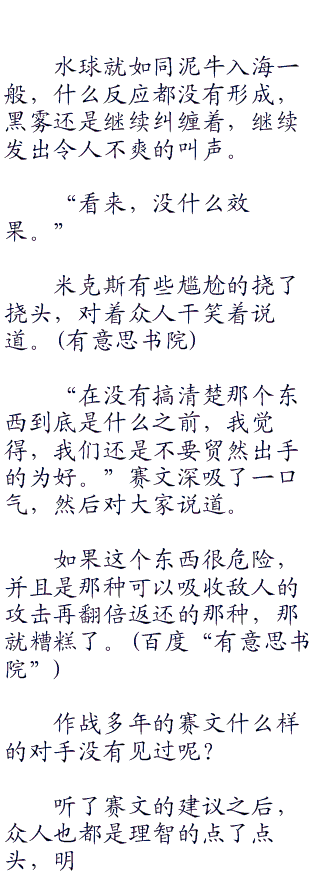 水球就如同泥牛入海一
般，什么反应都没有形成，
黑雾还是继续纠缠着，继续
发出令人不爽的叫声。
“看来，没什么效
果。”
米克斯有些尴尬的挠了
挠头，对着众人干笑着说
道。(有意思书院)
“在没有搞清楚那个东
西到底是什么之前，我觉
得，我们还是不要贸然出手
的为好。”赛文深吸了一口
气，然后对大家说道。
如果这个东西很危险，
并且是那种可以吸收敌人的
攻击再翻倍返还的那种，那
就糟糕了。(百度“有意思书
院”)
作战多年的赛文什么样
的对手没有见过呢？
听了赛文的建议之后，
众人也都是理智的点了点
头，明